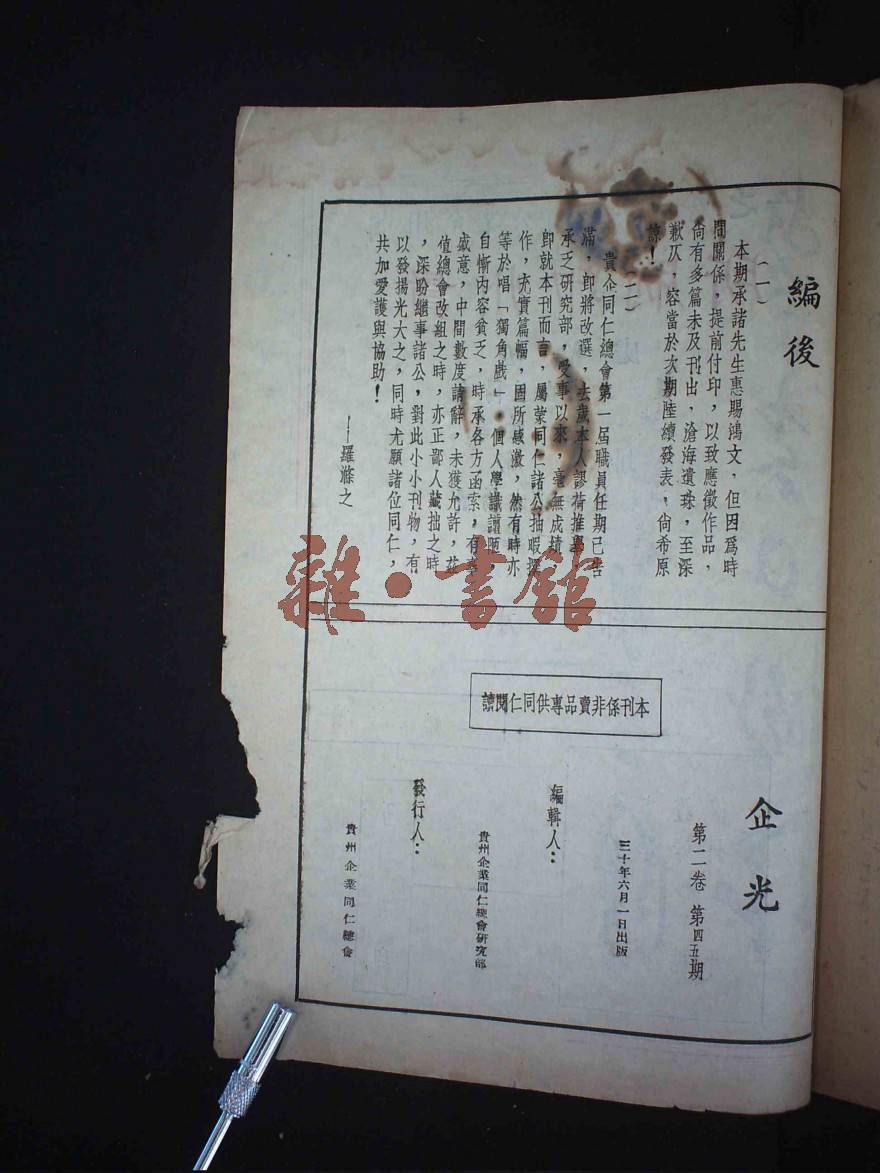 編後
(一)
本期承諸先生惠賜鴻文，但因爲時
間關係，提前付印，以致應徵作品，
尙有多篇未及刊出，滄海遺珠，至深
歉仄，容當於次期陸續發表，尙希原
諒！
(二)
貴企同仁總會第一屆職員任期已告
滿，卽將改選，去歲本人謬荷推舉
承乏硏究部，受事以來，毫無成績
卽就本刊而言，屬蒙同仁諸公抽暇
作，充實篇幅，固所感激，然有時亦
等於唱「獨角戲」，個人學識譾陋
自慚內容貧乏，時承各方函索，有
戚意，中間數度請辭，未獲允許，茲
値總會改組之時，亦正鄙人藏拙之時
，深盼繼事諸公，對此小小刊物，有
以發揚光大之，同時尤願諸位同仁，
共加愛護與協助！
——羅滌之
雜·書館
本刊係非賣品專供同仁閱讀
企光
第二卷 第四五期
三十年六月一日出版
編輯人：
貴州企業同仁總會硏究部
發行人：
貴州企業同仁總會